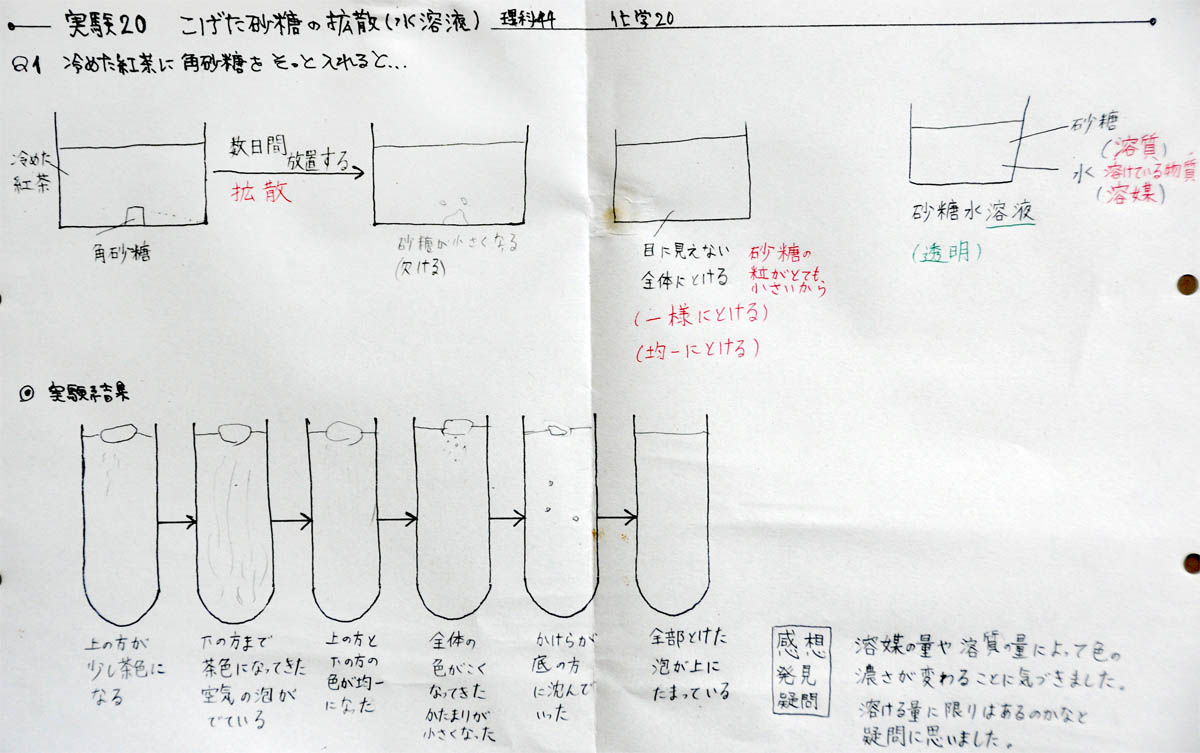 実験20 こげた砂糖の拡散(水溶液) 理科44 化学20
Q1 冷めた紅茶に角砂糖をそっと入れると…
冷めた
紅茶
角砂糖
数日間
放置する
拡散
砂糖が小さくなる
(欠ける)
目に見えない
全体にとける
砂糖の
粒がとても
小さいから
(一様にとける)
(均一にとける)
砂糖
(溶質)
溶けている物質
水
(溶媒)
砂糖水溶液
(透明)
◎ 実験結果
上の方が
少し茶色に
なる
下の方まで
茶色になってきた
空気の泡が
でている
上の方と
下の方の
色が均一
になった
全体の
色がこく
なってきた
かたまりが
小さくなった
かけらが
底の方
に沈んで
いった
全部とけた
泡が上に
たまっている
感想
発見
疑問
溶媒の量や溶質の量によって色の
濃さが変わることに気づきました。
溶ける量に限りはあるのかなと
疑問に思いました。